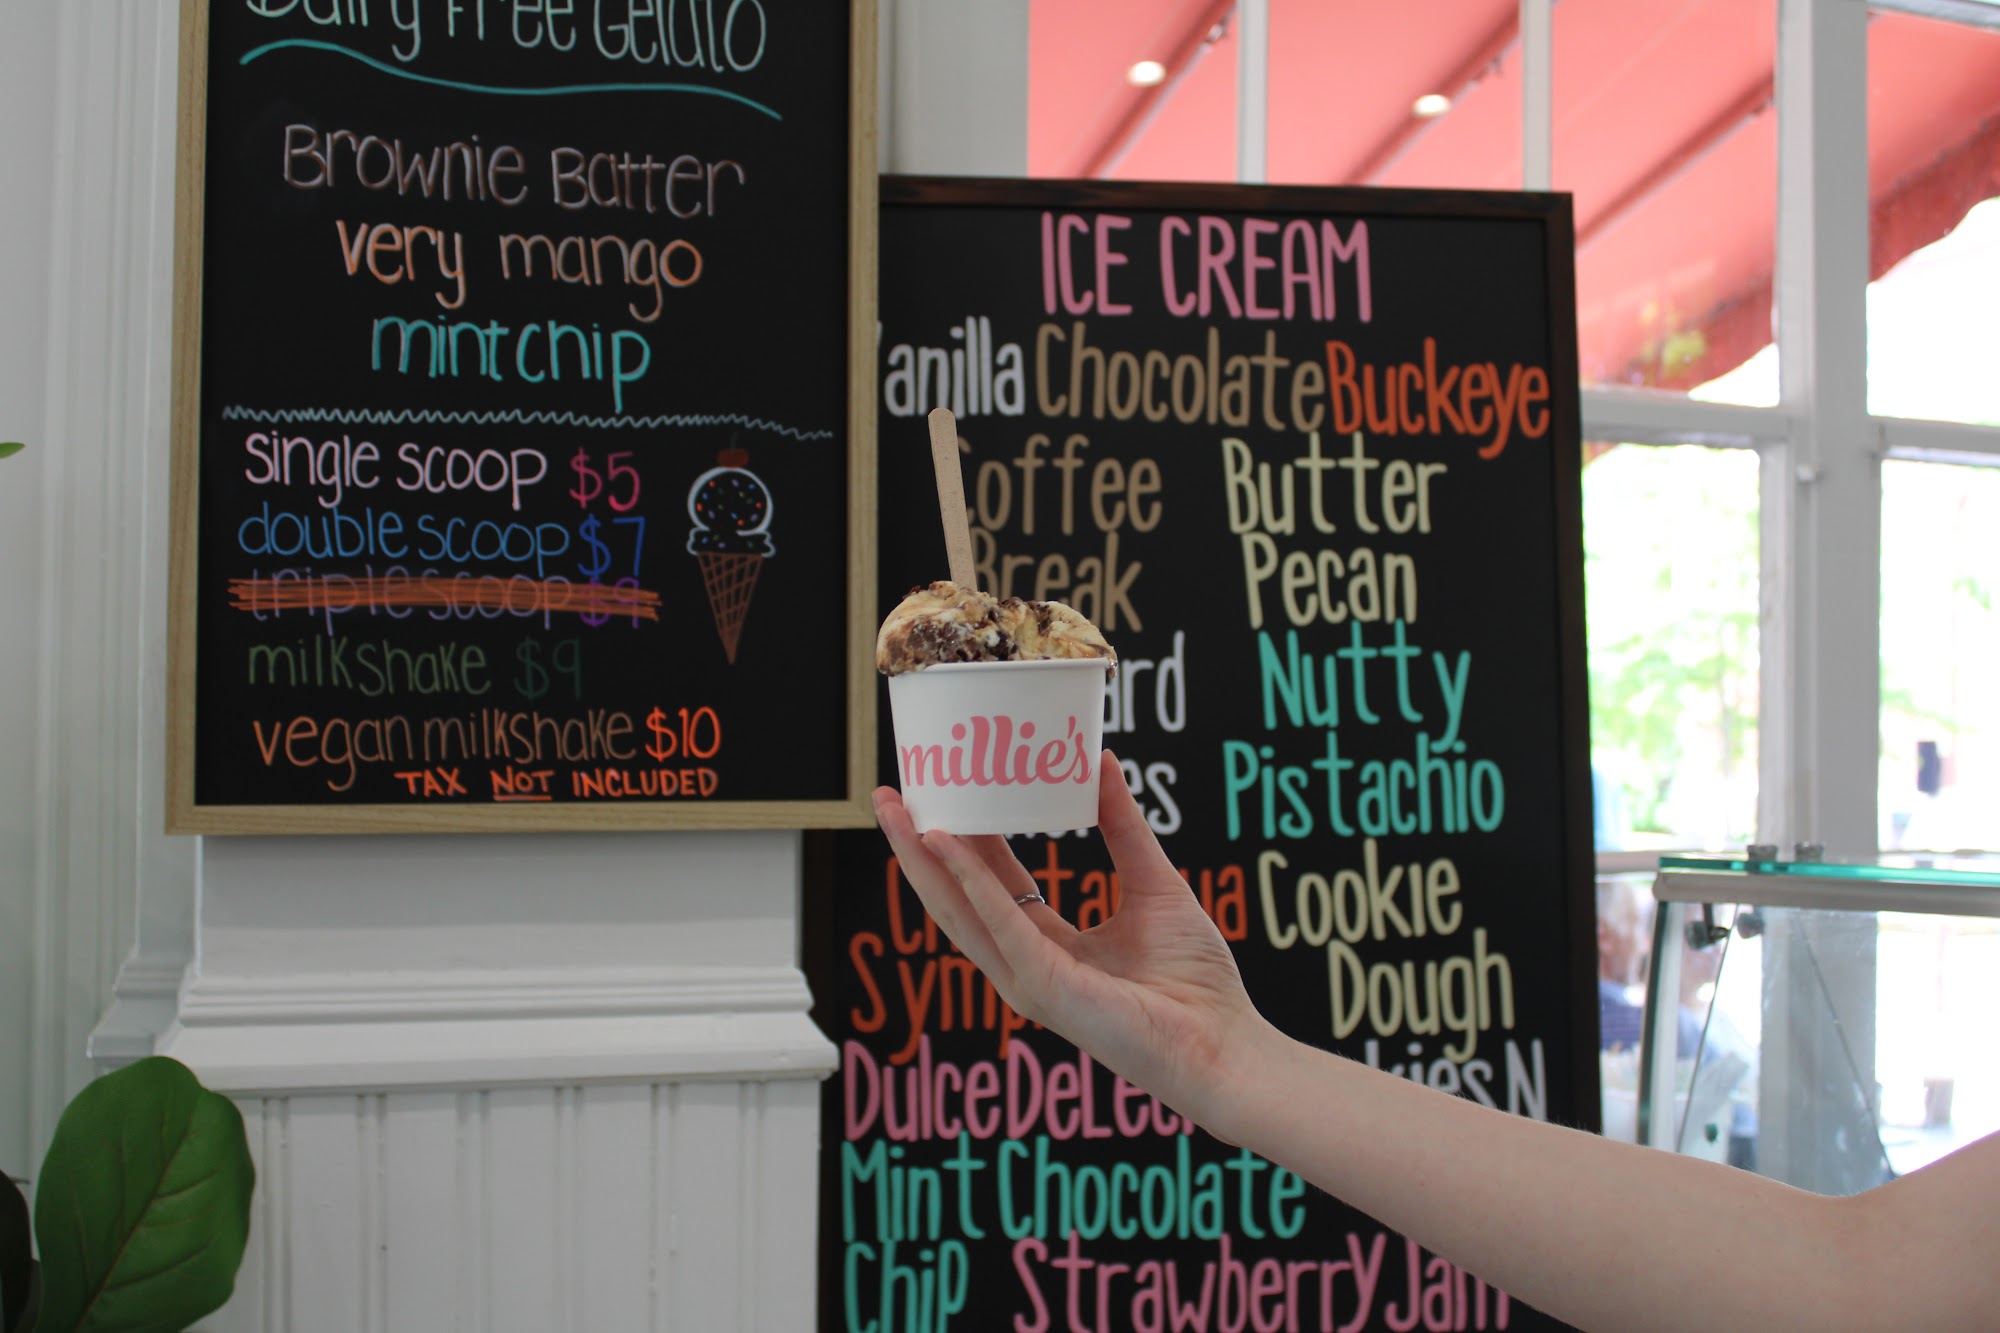 Dairy Free Gelato
Brownie Batter
very mango
mint chip
single scoop $5
double scoop $7
triple scoop $9
milkshake $9
vegan milkshake $10
TAX NOT INCLUDED
ICE CREAM
Vanilla Chocolate Buckeye
Coffee Butter
Break Pecan
ard Nutty
es Pistachio
Cookie
Dough
Dulce De Lec
kies N
Mint Chocolate
Chip Strawberry Jam
millie's